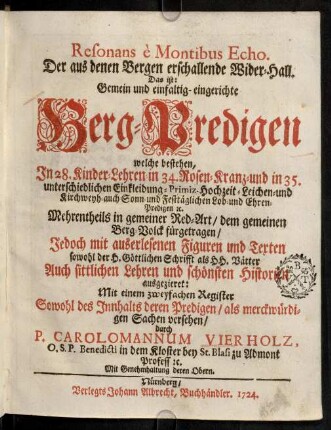 Resonans è Montibus Echo.
Der aus denen Bergen erschallende Wider-Hall.
Das ist:
Gemein und einfaltig-eingerichte
Berg-Predigen
welche bestehen,
In 28. Kinder-Lehren in 34. Rosen-Kranz-und in 35.
unterschiedlichen Einkleidung-Primiz-Hochzeit-Leichen-und
Kirchweyh-auch Sonn und Festtäglichen Lob-und Ehren-
Predigen ꝛc.
Mehrentheils in gemeiner Red-Art/dem gemeinen
Berg-Volck fürgetragen/
Jedoch mit außerlesenen Figuren und Texten
sowohl der H. Göttlichen Schrifft als HH. Vätter
Auch sittlichen Lehren und schönsten Historien
ausgezieret:
Mit einem zweyfachen Register
Sowohl des Innhalts deren Predigen/als merckwürdi-
gen Sachen versehen/
durch
P. CAROLOMANNUM VIERHOLZ,
O. S. P. Benedicti in dem Kloster bey St. Blasi zu Admont
Profess ꝛc.
Mit Genehmhaltung deren Obern.
Nürnberg/
Verlegts Johann Albrecht, Buchhändler. 1724.